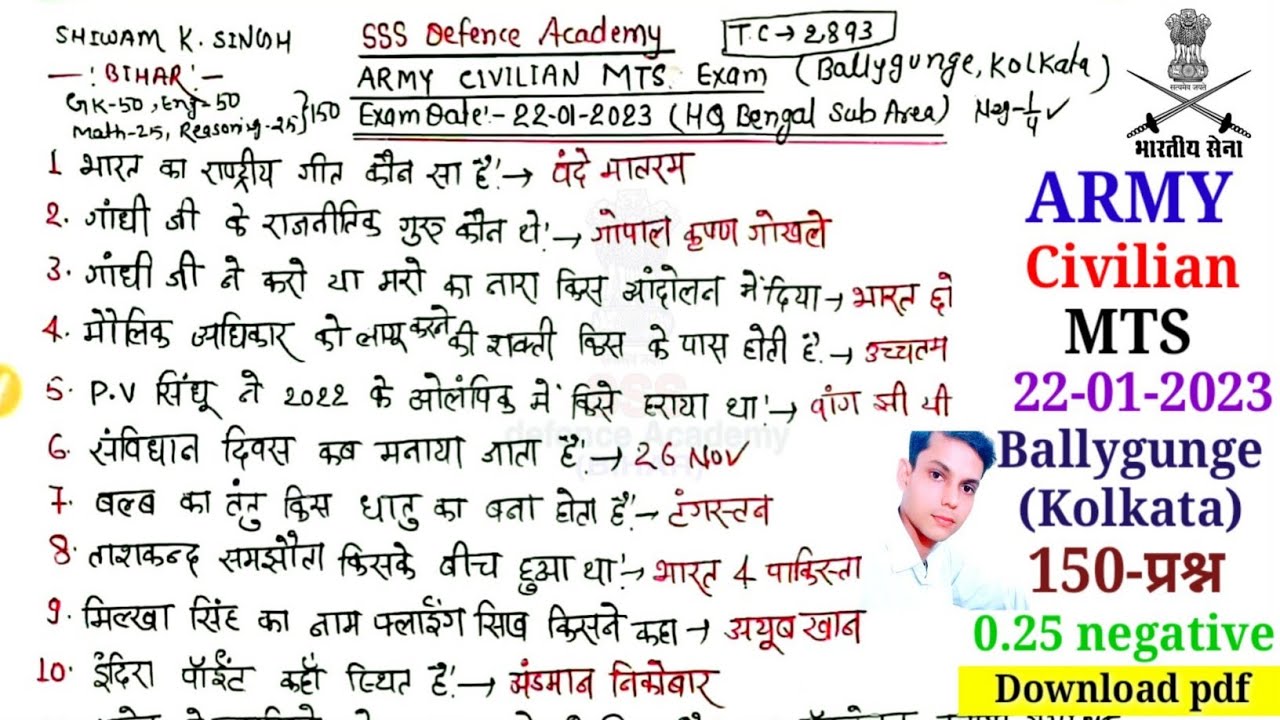 SHIWAM K. SINGH
SSS Defence Academy
T.C → 2893
— ! BIHAR ! —
ARMY CIVILIAN MTS Exam (Ballygunge, Kolkata)
GK-50, Eng-50
Math-25, Reasoning-25 } 150
Exam Date:- 22-01-2023 (HQ Bengal Sub Area) Neg-1/4 ✓
1 भारत का राष्ट्रीय गीत कौन सा है → वंदे मातरम
2. गांधी जी के राजनीतिक गुरु कौन थे → गोपाल कृष्ण गोखले
3. गांधी जी ने करो या मरो का नारा किस आंदोलन में दिया → भारत छो
4. मौलिक अधिकार को लागू करने की शक्ती किस के पास होती है. → उच्चतम
5. P.V सिंधू ने 2022 के ओलंपिक में किसे हराया था → वांग झी यी
6. संविधान दिवस कब मनाया जाता है → 26 Nov
7. बल्ब का तंतु किस धातु का बना होता है → टंगस्तन
8. ताशकन्द समझौता किसके बीच हुआ था → भारत 4 पाकिस्ता
9. मिल्खा सिंह का नाम फ्लाईंग सिख किसने कहा → अयूब खान
10. इंदिरा पॉईंट कहाँ स्थित है → अंडमान निकोबार
सत्यमेव जयते
भारतीय सेना
ARMY
Civilian
MTS
22-01-2023
Ballygunge
(Kolkata)
150-प्रश्न
0.25 negative
Download pdf
SSS
defence Academy